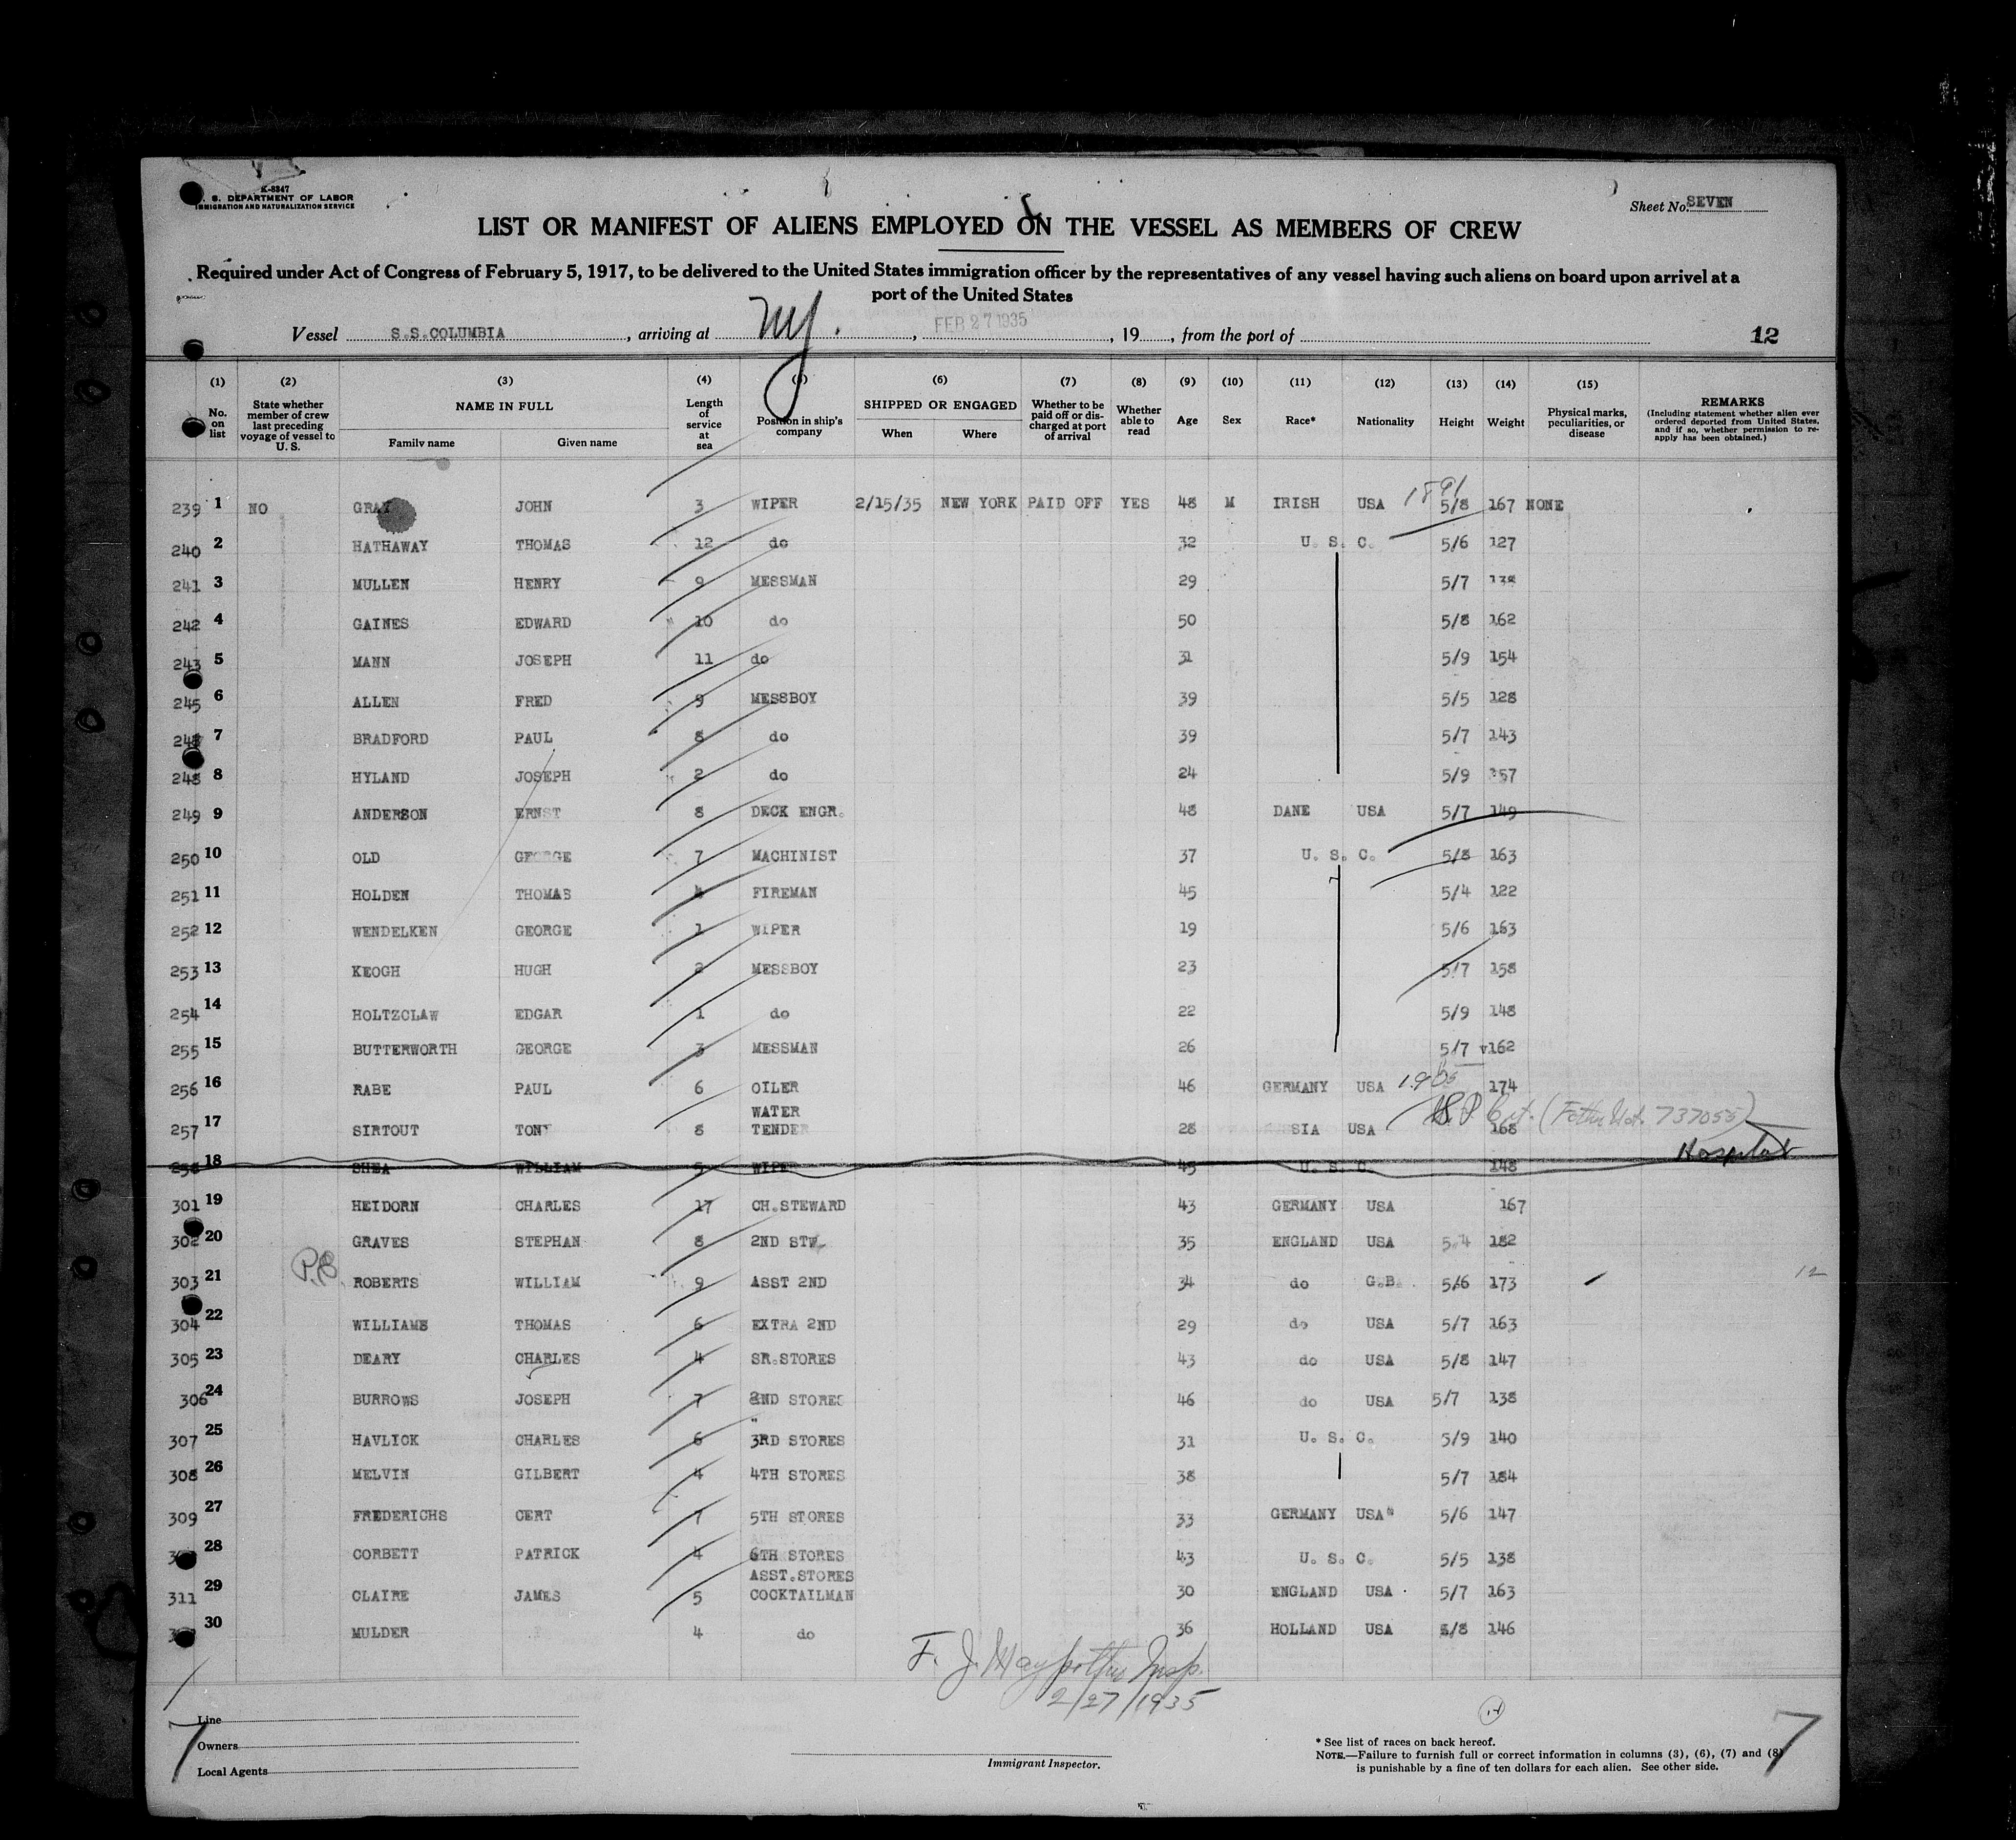 K-8347
S. DEPARTMENT OF LABOR
IMMIGRATION AND NATURALIZATION SERVICE
Sheet No. SEVEN
LIST OR MANIFEST OF ALIENS EMPLOYED ON THE VESSEL AS MEMBERS OF CREW
Required under Act of Congress of February 5, 1917, to be delivered to the United States immigration officer by the representatives of any vessel having such aliens on board upon arrival at a
port of the United States
Vessel S.S.COLUMBIA, arriving at NY., FEB 27 1935, 19, from the port of 12
(1) (2) (3) (4) (5) (6) (7) (8) (9) (10) (11) (12) (13) (14) (15)
No. on list
State whether member of crew last preceding voyage of vessel to U. S.
NAME IN FULL
Family name Given name
Length of service at sea
Position in ship's company
SHIPPED OR ENGAGED
When Where
Whether to be paid off or discharged at port of arrival
Whether able to read
Age Sex Race* Nationality Height Weight
Physical marks, peculiarities, or disease
REMARKS
(Including statement whether alien ever ordered deported from United States, and if so, whether permission to reapply has been obtained.)
239 1 NO GRAY JOHN 3 WIPER 2/15/35 NEW YORK PAID OFF YES 48 M IRISH USA 1891 5/8 167 NONE
240 2 HATHAWAY THOMAS 12 do 32 U. S. C. 5/6 127
241 3 MULLEN HENRY 9 MESSMAN 29 5/7 138
242 4 GAINES EDWARD 10 do 50 5/8 162
243 5 MANN JOSEPH 11 do 31 5/9 154
245 6 ALLEN FRED 9 MESSBOY 39 5/5 128
7 BRADFORD PAUL 8 do 39 5/7 143
248 8 HYLAND JOSEPH 2 do 24 5/9 157
249 9 ANDERSON ERNST 8 DECK ENGR. 48 DANE USA 5/7 149
250 10 OLD GEORGE 7 MACHINIST 37 U. S. C. 5/8 163
251 11 HOLDEN THOMAS 4 FIREMAN 45 5/4 122
252 12 WENDELKEN GEORGE 1 WIPER 19 5/6 163
253 13 KEOGH HUGH 2 MESSBOY 23 5/7 158
254 14 HOLTZCLAW EDGAR 1 do 22 5/9 148
255 15 BUTTERWORTH GEORGE 3 MESSMAN 26 5/7 162
256 16 RABE PAUL 6 OILER 46 GERMANY USA 1905 174
257 17 SIRTOUT TONY 8 WATER TENDER 28 SSIA USA 168 (Father Nat. 737055)
258 18 SHEA WILLIAM 5 WIPER 45 U. S. C. 148 Hospital
301 19 HEIDORN CHARLES 17 CH.STEWARD 43 GERMANY USA 167
302 20 GRAVES STEPHAN 8 2ND STW. 35 ENGLAND USA 5/4 182
303 21 ROBERTS WILLIAM 9 ASST 2ND 34 do G.B. 5/6 173 12
304 22 WILLIAMS THOMAS 6 EXTRA 2ND 29 do USA 5/7 163
305 23 DEARY CHARLES 4 SR.STORES 43 do USA 5/8 147
306 24 BURROWS JOSEPH 7 2ND STORES 46 do USA 5/7 138
307 25 HAVLICK CHARLES 6 3RD STORES 31 U. S. C. 5/9 140
308 26 MELVIN GILBERT 4 4TH STORES 38 5/7 184
309 27 FREDERICHS CERT 7 5TH STORES 33 GERMANY USA 5/6 147
28 CORBETT PATRICK 4 6TH STORES 43 U. S. C. 5/5 138
311 29 CLAIRE JAMES 5 ASST.STORES COCKTAILMAN 30 ENGLAND USA 5/7 163
30 MULDER 4 do 36 HOLLAND USA 5/8 146
Insp.
2/27/1935
Line
Owners
Local Agents
7
Immigrant Inspector.
* See list of races on back hereof.
NOTE.—Failure to furnish full or correct information in columns (3), (6), (7) and (8)
is punishable by a fine of ten dollars for each alien. See other side.
7